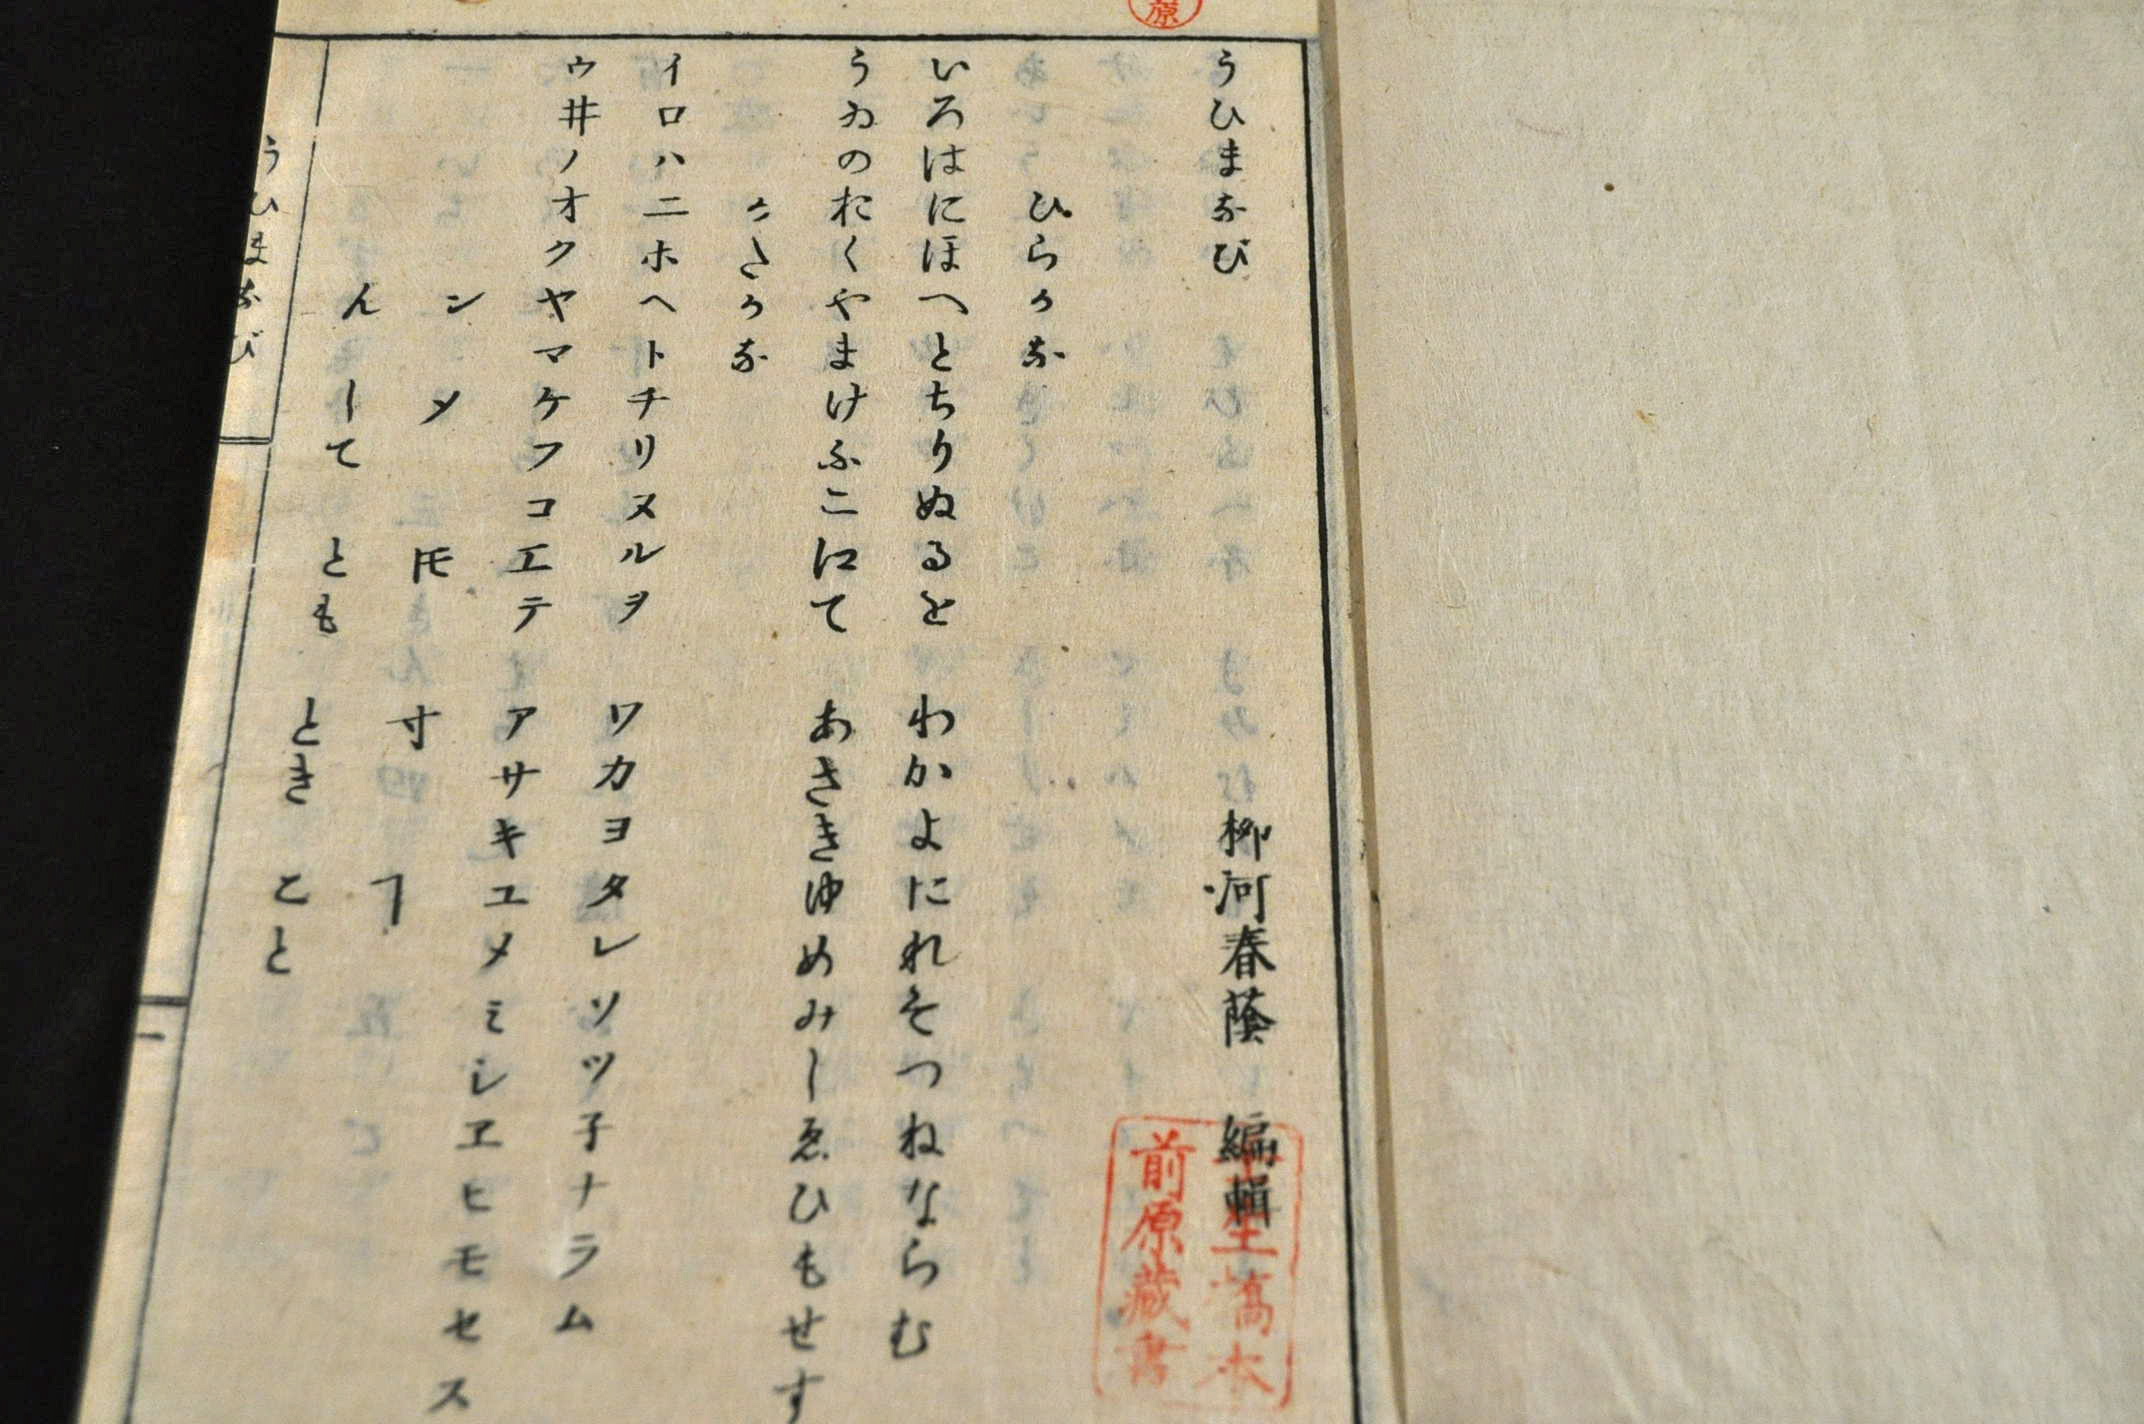 うひまなび 柳河春蔭 編輯
ひらかな
いろはにほへとちりぬるを わかよたれそつねならむ
うゐのおくやまけふこえて あさきゆめみしゑひもせす
かたかな
イロハニホヘトチリヌルヲ ワカヨタレソツ子ナラム
ウ井ノオクヤマケフコエテ アサキユメミシヱヒモセス
ン 〆 𪜈 寸 ヿ
ん して とも とき こと
うひまなび 一
原
橋本
前原蔵書